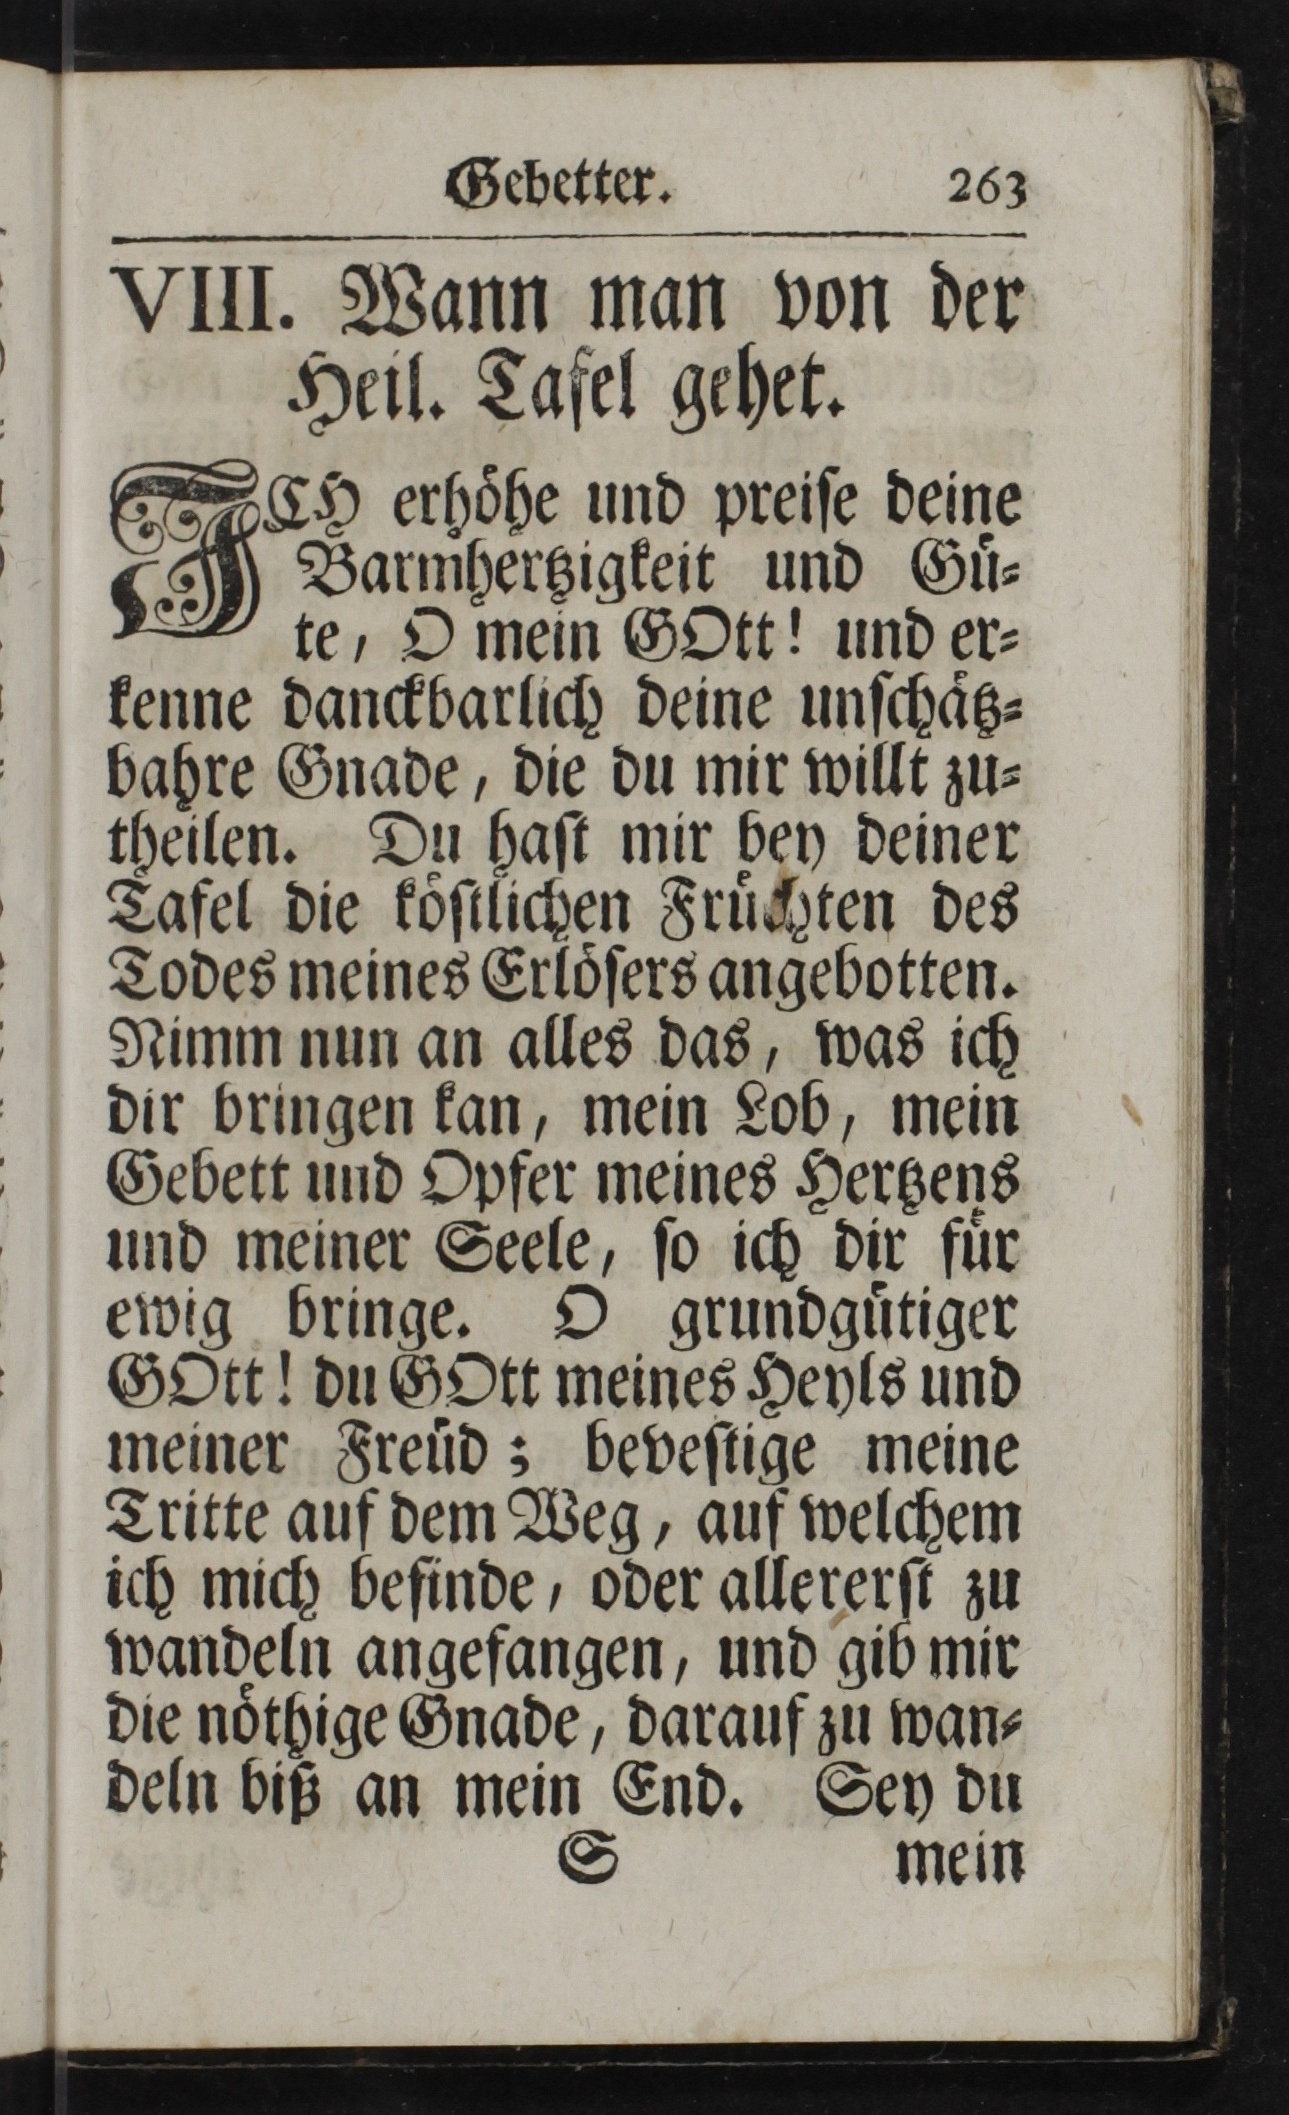 Gebetter. 263
VIII. Wann man von der
Heil. Tafel gehet.
ICH erhöhe und preise deine
Barmhertzigkeit und Gü-
te, O mein GOtt! und er-
kenne danckbarlich deine unschätz-
bahre Gnade, die du mir willt zu-
theilen. Du hast mir bey deiner
Tafel die köstlichen Früchten des
Todes meines Erlösers angebotten.
Nimm nun an alles das, was ich
dir bringen kan, mein Lob, mein
Gebett und Opfer meines Hertzens
und meiner Seele, so ich dir für
ewig bringe. O grundgütiger
GOtt! du GOtt meines Heyls und
meiner Freüd; bevestige meine
Tritte auf dem Weg, auf welchem
ich mich befinde, oder allererst zu
wandeln angefangen, und gib mir
die nöthige Gnade, darauf zu wan-
deln biß an mein End. Sey du
S mein